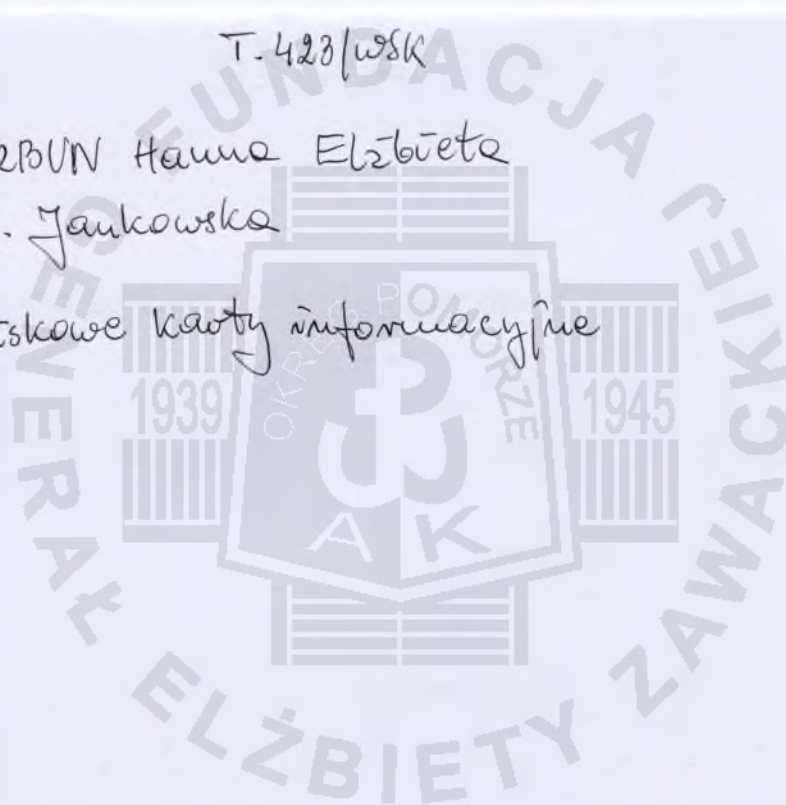 T. 423/WSK
Hanna Elżbieta
Jankowska
karty informacyjne
FUNDACJA GENERAŁ ELŻBIETY ZAWACKIEJ
OKRĘG POMORZE
1939
1945
AK